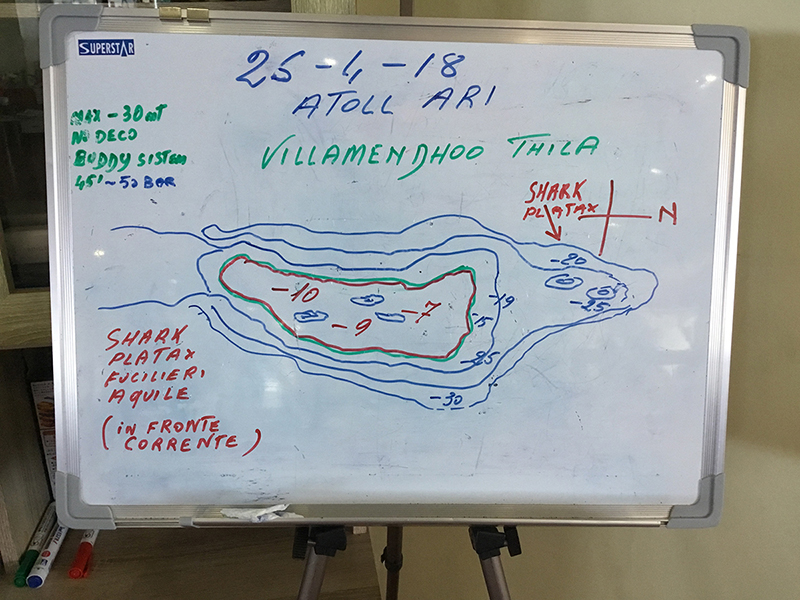 SUPERSTAR
25-4-18
ATOLL ARI
MAX -30 mt
NO DECO
BUDDY SISTEM
45' ~ 50 BAR
VILLAMENDHOO THILA
SHARK
PLATAX
N
-20
-25
-10
-7
-9
-19
-15
-25
-30
SHARK
PLATAX
FUCILIERI
AQUILE
(IN FRONTE
CORRENTE)